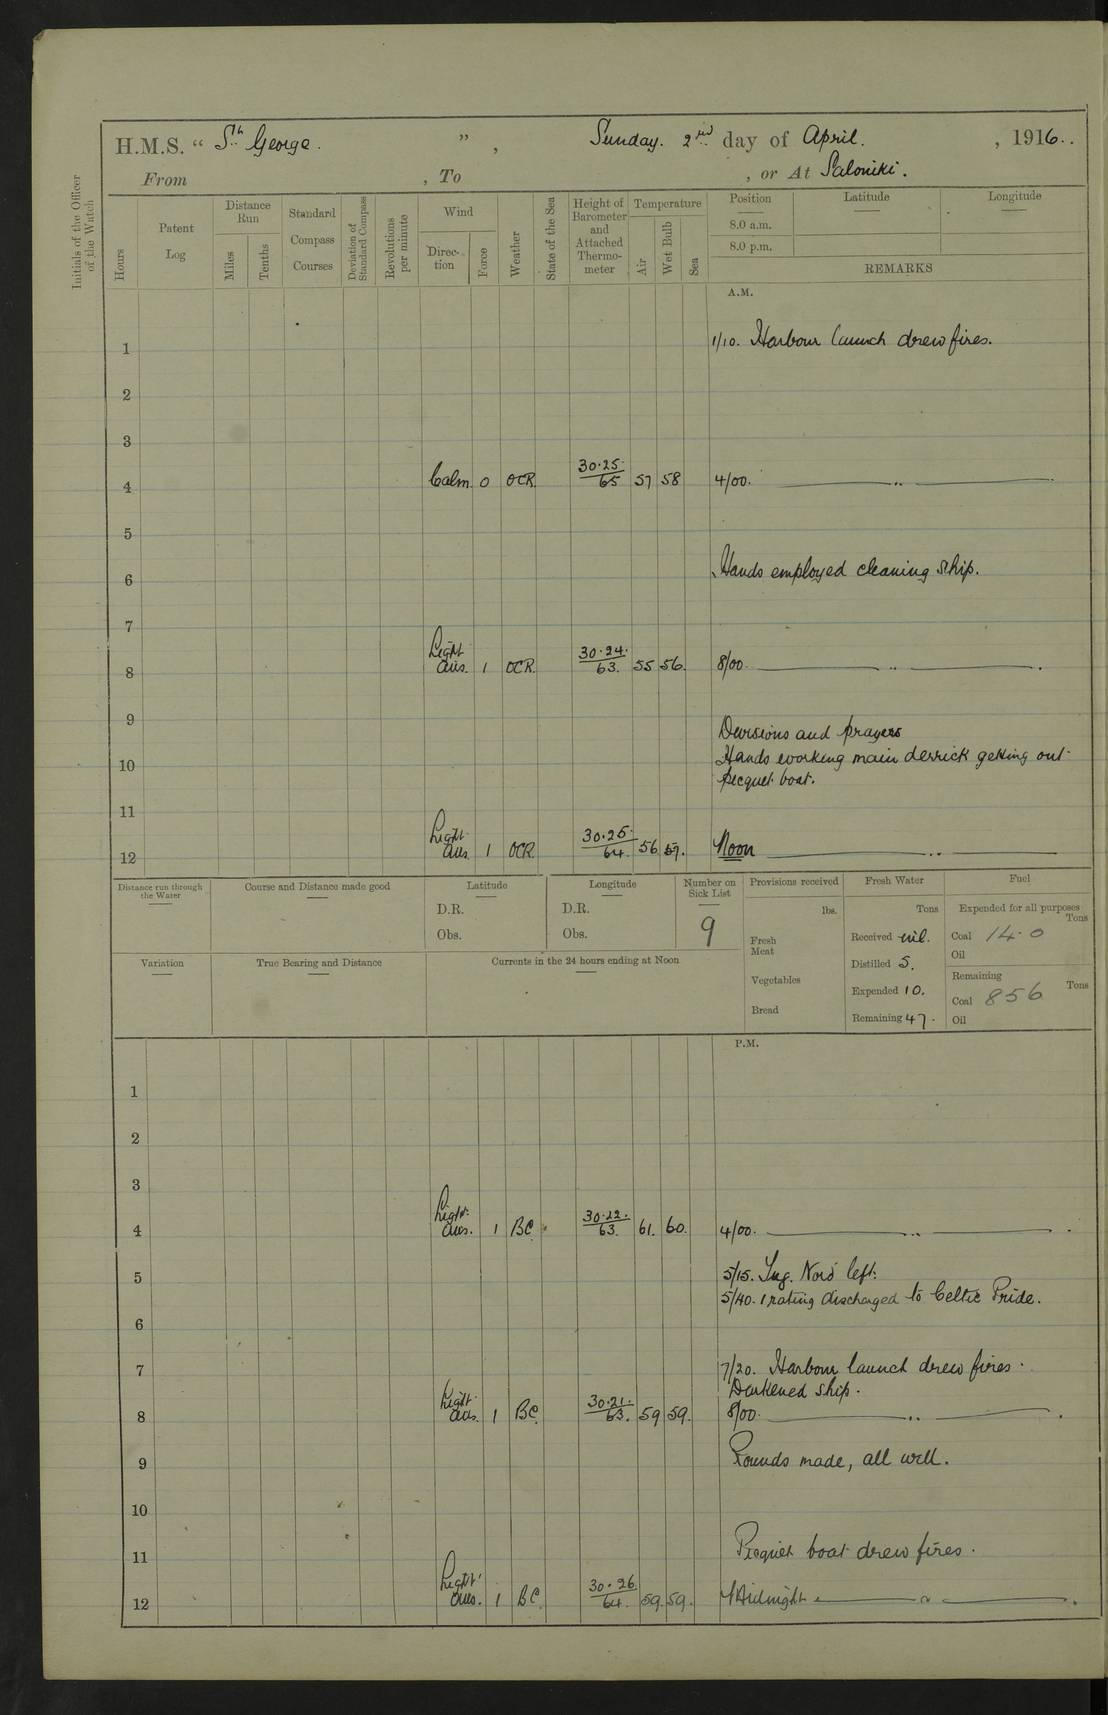 H.M.S. “ St. George. ” , Sunday. 2nd day of April. , 1916..
From , To , or At Saloniki.
Initials of the Officer of the Watch
Hours
Patent Log
Distance Run
Miles
Tenths
Standard Compass Courses
Deviation of Standard Compass
Revolutions per minute
Wind
Direction
Force
Weather
State of the Sea
Height of Barometer and Attached Thermometer
Temperature
Air
Wet Bulb
Sea
Position
8.0 a.m.
8.0 p.m.
Latitude
Longitude
REMARKS
A.M.
1 1/10. Harbour launch drew fires.
2
3
4 Calm. 0 OCR. 30.25/65 57 58 4/00. ——— „ ———
5
6 Hands employed cleaning ship.
7
8 Light airs. 1 OCR. 30.24./63. 55 56. 8/00. ——— „ ———.
9 Divisions and prayers
10 Hands working main derrick getting out
picquet boat.
11
12 Light airs. 1 OCR. 30.25/64. 56 57. Noon ——— „ ———
Distance run through the Water
Course and Distance made good
Latitude
D.R.
Obs.
Longitude
D.R.
Obs.
Number on Sick List
9
Provisions received
lbs.
Fresh Meat
Vegetables
Bread
Fresh Water
Tons
Received nil.
Distilled 5.
Expended 10.
Remaining 47.
Fuel
Expended for all purposes
Tons
Coal 14.0
Oil
Remaining
Tons
Coal 856
Oil
Variation
True Bearing and Distance
Currents in the 24 hours ending at Noon
P.M.
1
2
3
4 Light airs. 1 BC 30.22./63. 61. 60. 4/00. ——— „ ———.
5 5/15. Tug. Nord left.
5/40. 1 rating discharged to Celtic Pride.
6
7 7/20. Harbour launch drew fires.
Darkened ship.
8 Light airs. 1 BC. 30.21./63. 59 59. 8/00. ——— „ ———.
9 Rounds made, all well.
10
11 Picquet boat drew fires.
12 Light airs. 1 BC. 30.26/64. 59. 59. Midnight ——— „ ———.